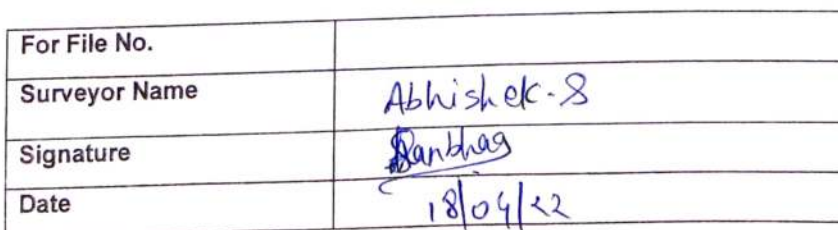 For File No.
Surveyor Name Abhishek-S
Signature Sanbhag
Date 18/04/22